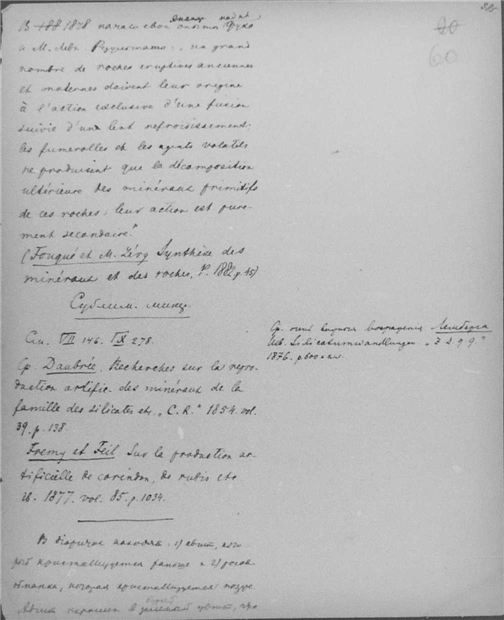 60
В 1878 начали свои опыты Фукэ
и М. Леви
un grand
nombre de roches éruptives anciennes
et modernes doivent leur origine
à l'action exclusive d'une fusion
suivie d'un lent refroidissement;
les fumerolles et les agents volatils
ne produisent que la décomposition
ultérieure des minéraux primitifs
de ces roches: leur action est pure-
ment secondaire."
(Fouqué et M. Lévy Synthèse des
minéraux et des roches, P. 1882 p. 45)
Сублим. минер.
См. VII 146. IX 278.
Ср. Daubrée, Recherches sur la repro-
duction artific. des minéraux de la
famille des silicates etc. „C. R." 1854. vol.
39. p. 138.
Fremy et Feil Sur la production ar-
tificielle de corindon, de rubis etc
ib. 1877. vol. 85. p. 1034.
Ср. возражения Лемберга
Silicatumwandlungen „Z d g G"
1876. p. 600
В диорите находят: 1) авгит,
раньше и 2) роговая
обманка, которая кристаллизуется позже
Авгит в зеленый цвет,